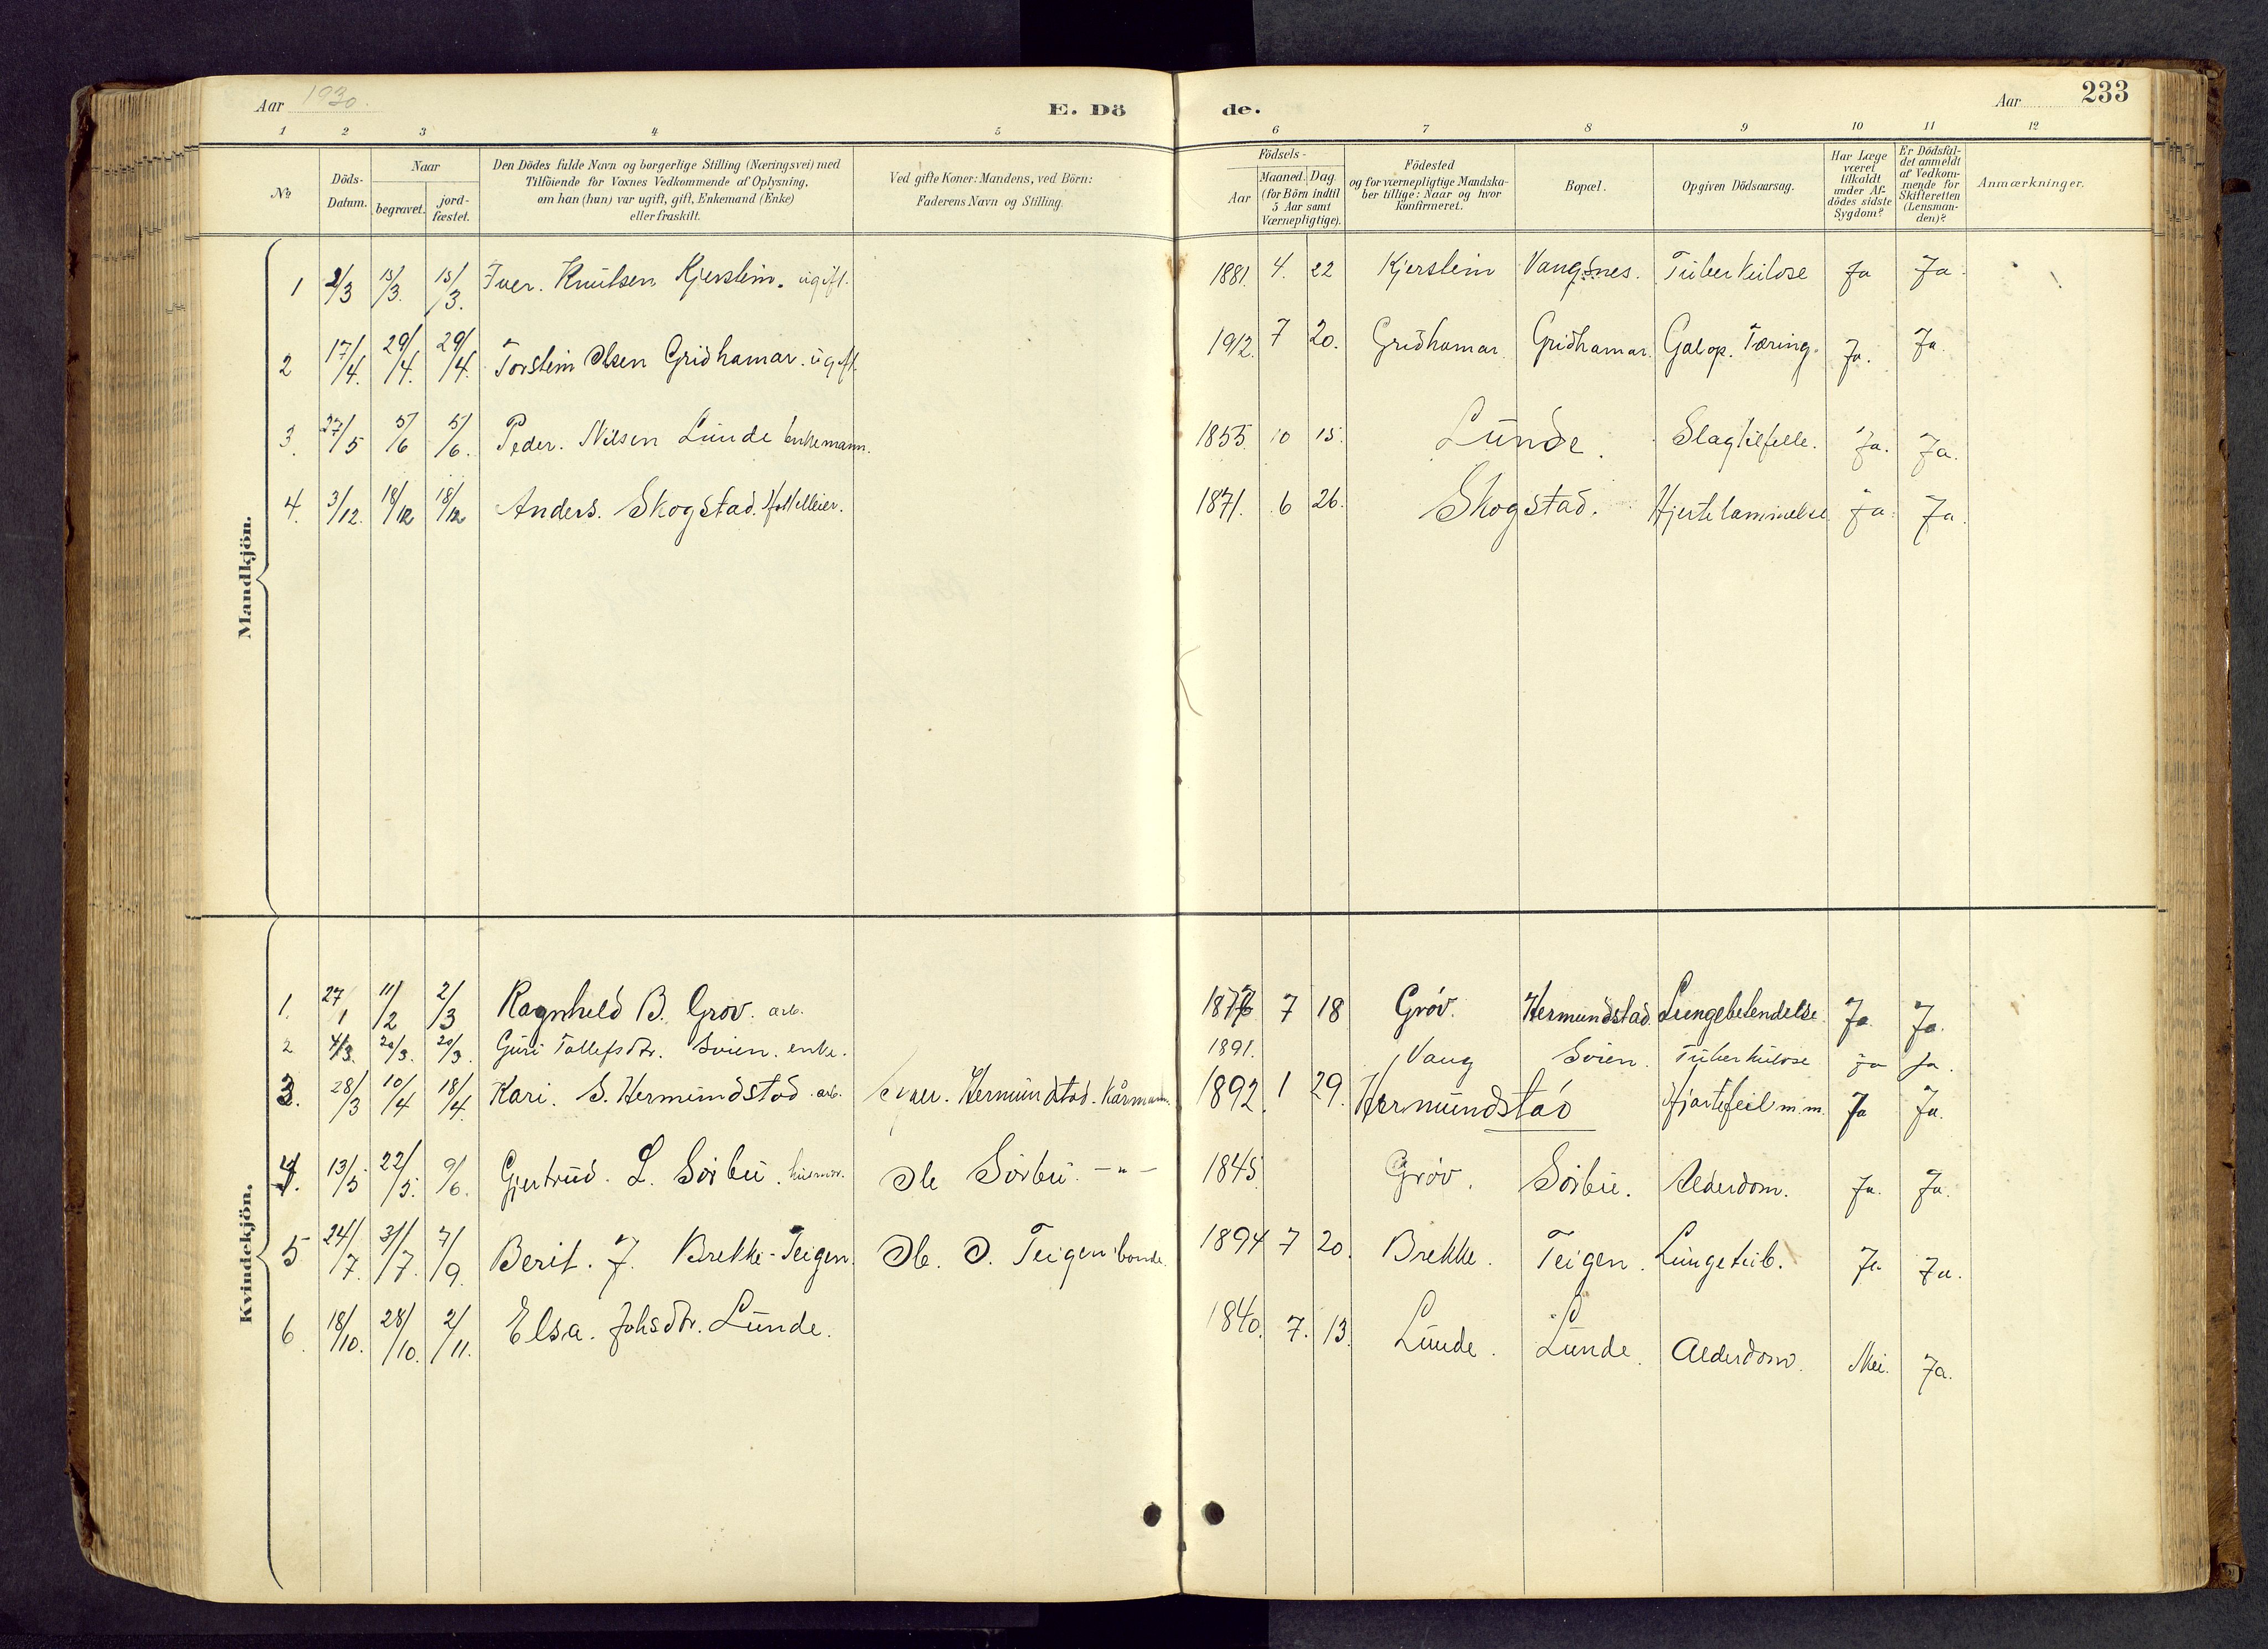 Aar 1930. E. Dö de. Aar 233
1 2 3 4 5 6 7 8 9 10 11 12
No
Döds-Datum.
Naar
begravet.
jord-fæstet.
Den Dödes fulde Navn og borgerlige Stilling (Næringsvei) med
Tilföiende for Voxnes Vedkommende af Oplysning,
om han (hun) var ugift, gift, Enkemand (Enke)
eller fraskilt.
Ved gifte Koner: Mandens, ved Börn:
Faderens Navn og Stilling.
Födsels-
Aar
Maaned. Dag
(for Börn indtil
5 Aar samt
Værnepligtige).
Födested
og for værnepligtige Mandska-
ber tillige: Naar og hvor
konfirmeret.
Bopæl.
Opgiven Dödsaarsag.
Har Læge
været
tilkaldt
under Af-
dödes sidste
Sygdom?
Er Dödsfal-
det anmeldt
af Vedkom-
mende for
Skifteretten
(Lensman-
den)?
Anmærkninger.
Mandkjön.
1 2/3 13/3. 13/3. Iver. Knutsen Kjerstein. ugift. 1881. 4. 22 Kjerstein Vangsnes. Tuberkulose Ja Ja.
2 17/4. 29/4. 29/4. Torstein Olsen Gridhamar. ugift. 1912. 7 20. Gridhamar. Gridhamar. Galop. Tæring. Ja. Ja.
3. 27/5 5/6 5/6. Peder. Nilsen Lunde enkemann. 1855 10 15. Lunde. Slagtilfelle. Ja. Ja.
4. 3/12. 18/12 18/12 Anders. Skogstad. Hotelleier. 1871. 6 26. Skogstad. Hjertelammelse Ja. Ja.
Kvindekjön.
1. 27/1 11/2 2/3 Ragnhild B. Grøv. arb. 1876 7 18 Grøv. Hermundstad. Lungebetendelse. Ja. Ja.
2 4/3. 20/3. 20/3. Guri Tollefsdtr. Søien. enke. 1891. Vang Søien. Tuberkulose Ja Ja.
3. 28/3 10/4 18/4 Kari. S. Hermundstad. arb. Hermundstad. Kårmann. 1892. 1 29. Hermundstad Hjartefeil m.m. Ja Ja.
4. 13/5 22/5. 9/6. Gjertrud. L. Sørbu. husmor. Ole Sørbu. — " — 1845 Grøv. Sørbu. Alderdom. Ja. Ja.
5 24/7. 31/7. 7/9. Berit. J. Brekke-Teigen. Ole. O. Teigen bonde. 1894 7 20. Brekke. Teigen. Lungetub. Ja Ja.
6. 18/10. 28/10. 2/11. Elsa. Johsdtr. Lunde. 1840. 7. 13. Lunde. Lunde. Alderdom. Nei. Ja.